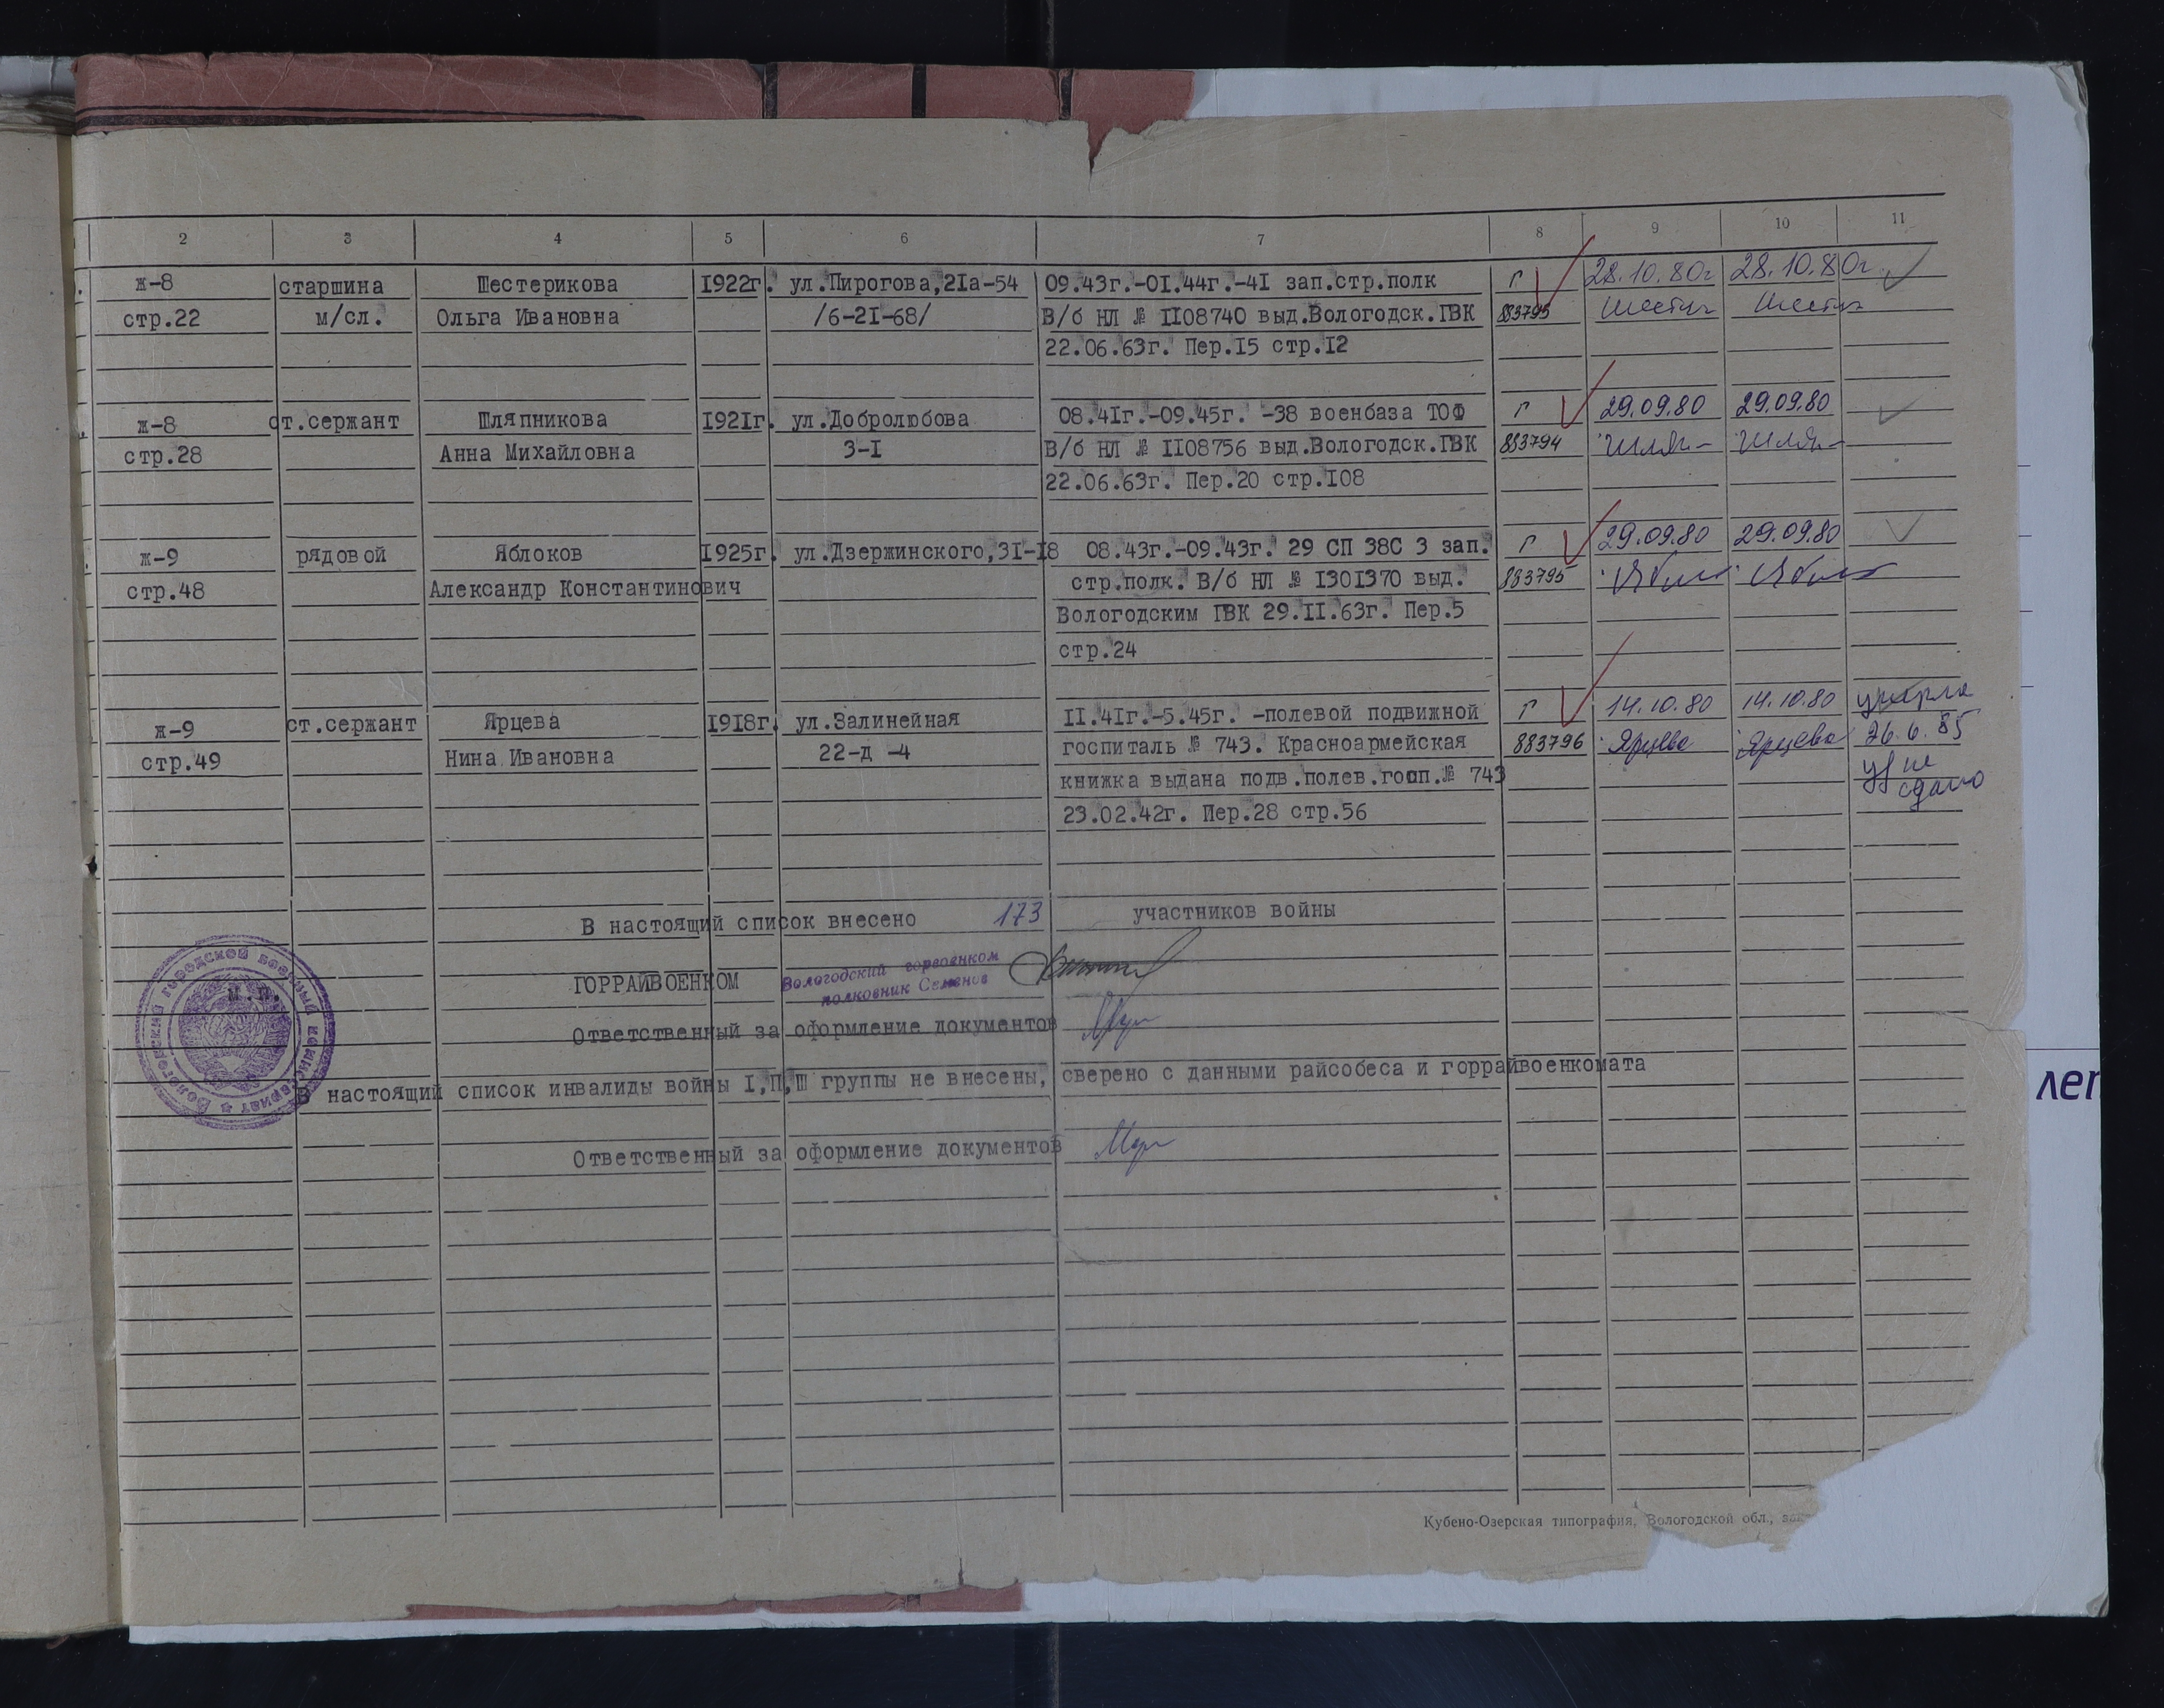 2 3 4 5 6 7 8 9 10 11
ж-8 старшина Шестерикова 1922г. ул.Пирогова,21а-54 09.43г.-01.44г.-41 зап.стр.полк Г 28.10.80г 28.10.80г.
стр.22 м/сл. Ольга Ивановна /6-21-68/ В/б НЛ № 1108740 выд.Вологодск.ГВК 883793
22.06.63г. Пер.15 стр.12
ж-8 ст.сержант Шляпникова 1921г. ул.Добролюбова 08.41г.-09.45г. -38 военбаза ТОФ Г 29.09.80 29.09.80
стр.28 Анна Михайловна 3-1 В/б НЛ № 1108756 выд.Вологодск.ГВК 883794
22.06.63г. Пер.20 стр.108
ж-9 рядовой Яблоков 1925г. ул.Дзержинского,31-18 08.43г.-09.43г. 29 СП 38С 3 зап. Г 29.09.80 29.09.80
стр.48 Александр Константинович стр.полк. В/б НЛ № 1301370 выд. 883795
Вологодским ГВК 29.11.63г. Пер.5
стр.24
ж-9 ст.сержант Ярцева 1918г. ул.Залинейная 11.41г.-5.45г. -полевой подвижной Г 14.10.80 14.10.80 умерла
стр.49 Нина Ивановна 22-д -4 госпиталь № 743. Красноармейская 883796 Ярцева Ярцева 26.6.85
книжка выдана подв.полев.госп.№ 743 уд не
23.02.42г. Пер.28 стр.56 сдано
В настоящий список внесено 173 участников войны
ГОРРАЙВОЕНКОМ Вологодский горвоенком
полковник Семенов
М.П.
Вологодский городской военный комиссариат
Ответственный за оформление документов
В настоящий список инвалиды войны I,П,Ш группы не внесены, сверено с данными райсобеса и горрайвоенкомата
Ответственный за оформление документов
Кубено-Озерская типография, Вологодской обл.,
лег